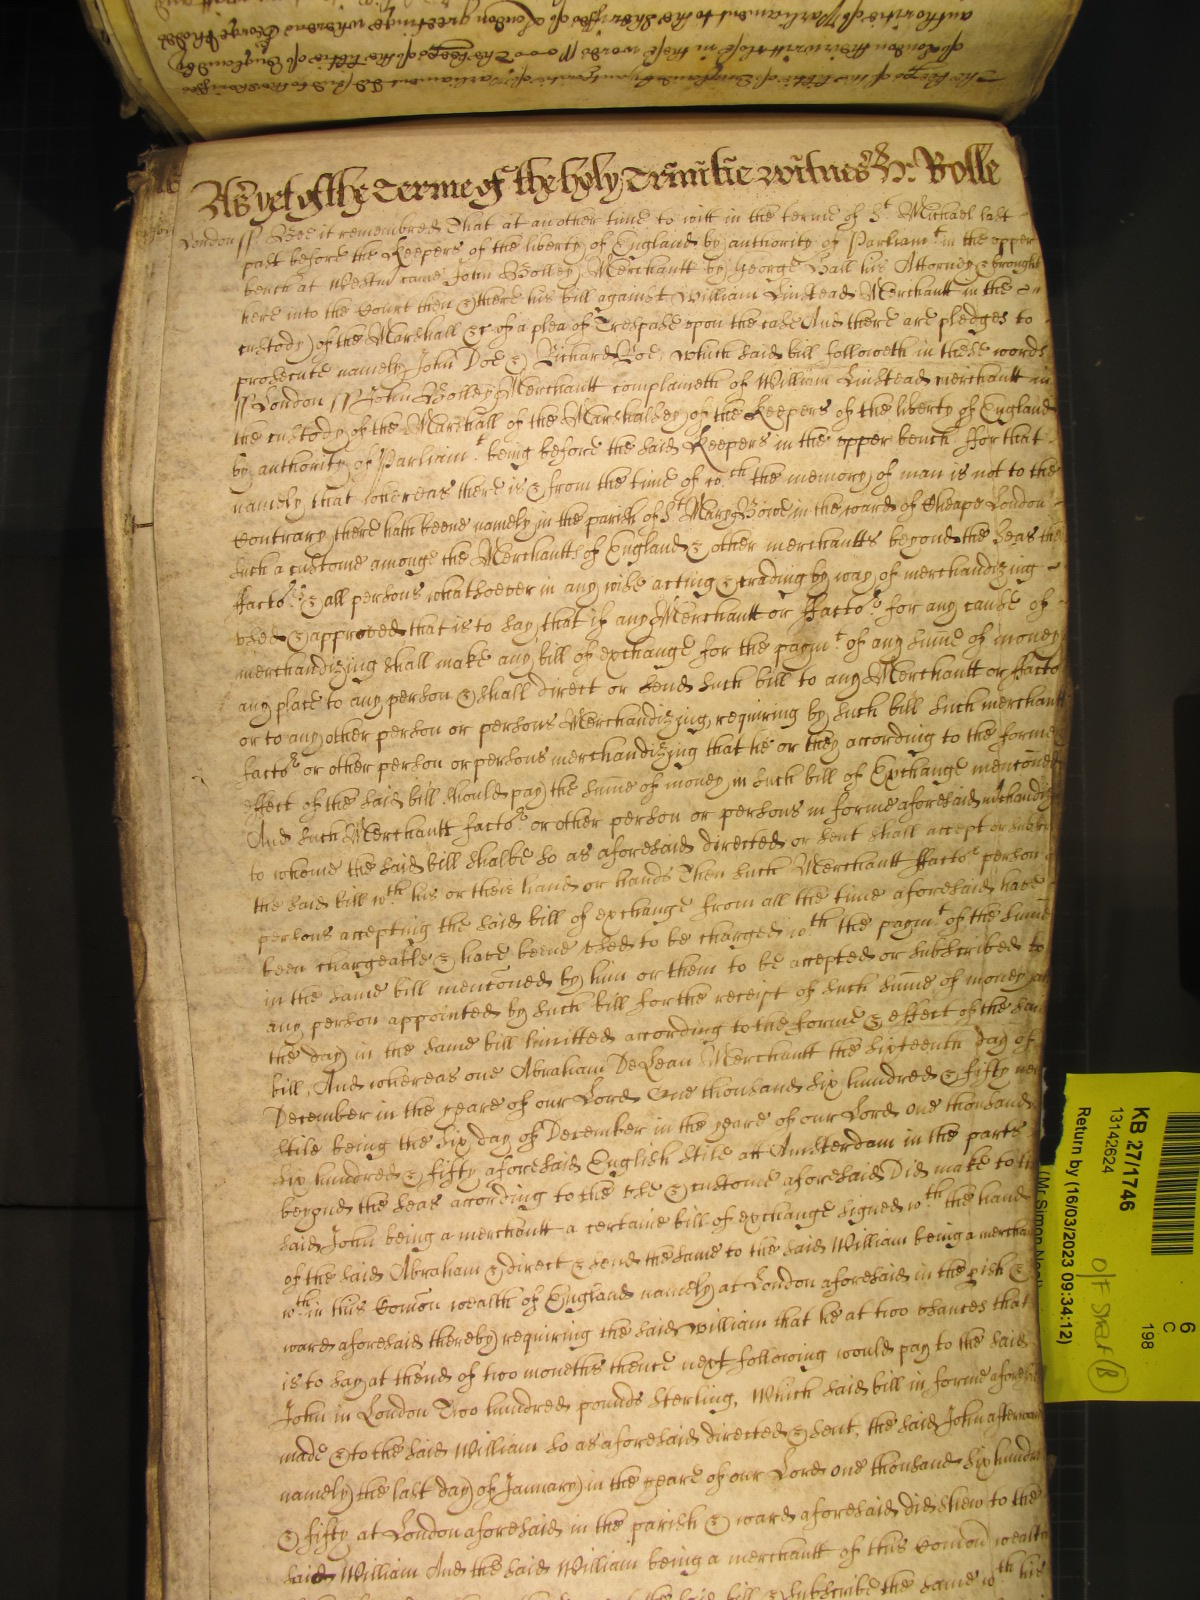 As yet of the Terme of the holy Trinitie witnes H: Rolle
London // Bee it remembred That at another time to witt in the terme of St Michael last
past before the Keepers of the liberty of England by authority of Parliamt in the upper
bench at Westm came John Bolley Merchantt by George Hall his Attorney & brought
here into the Court then & there his bill against William Linstead Merchantt in the
custody of the Marshall &c of a plea of Trespase upon the case And there are pledges to
prosecute namely John Doe & Richard Roe, which said bill followeth in these words
// London // John Bolley Merchantt complaineth of William Linstead merchantt in
the custody of the Marshall of the Marshalsey of the Keepers of the liberty of England
by authority of Parliamt being before the said Keepers in the upper bench ffor that
namely that whereas there is & from the time of wch the memory of man is not to the
Contrary there hath beene namely in the parish of St Mary Bowe in the ward of Cheape London
such a custome amonge the Merchantts of England & other merchantts beyond the Seas the
ffactors & all persons whatsoever in any wise acting & trading by way of merchandizing
used & approved that is to say, that if any Merchantt or ffactor for any cause of
merchandizing shall make any bill of exchange for the paymt of any sume of money
any place to any person & shall direct or send such bill to any Merchantt or ffacto
or to any other person or persons Merchandizing, requiring by such bill such merchant
factor or other person or persons merchandizing that he or they according to the forme
effect of the said bill should pay the sume of money in such bill of Exchange mencioned
And such Merchantt factor or other person or persons in forme aforesaid mchandiz
to whome the said bill shalbe so as aforesaid directed or sent shall accept or subsc
the said bill wth his or their hand or hands Then such Merchantt ffactor person
persons accepting the said bill of exchange from all the time aforesaid have
been chargeable & have beene used to be charged wth the paymt of the sume
in the same bill mencioned by him or them to be accepted or subscribed to
any person appointed by such bill for the receipt of such sume of money
the day in the same bill limitted according to the forme & effect of the sam
bill, And whereas one Abraham DeLean Merchantt the sixteenth day of
December in the yeare of our Lord One thousand six hundred & fifty new
stile being the six day of December in the yeare of our Lord one thousand
six hundred & fifty aforesaid English stile att Amsterdam in the parts
beyond the seas according to the use & custome aforesaid Did make to the
said John being a merchantt a certaine bill of exchange signed wth the hand
of the said Abraham & direct & send the same to the said William being a mercha
wthin this Comon wealth of England namely at London aforesaid in the pish &
ward aforesaid thereby requiring the said William that he at two usances that
is to say at thend of two moneths thence next following would pay to the said
John in London Two hundred pounds sterling, Which said bill in forme afores
made & to the said William so as aforesaid directed & sent, the said John afterwar
namely the last day of January in the yeare of our Lord one thousand six hundre
& fifty at London aforesaid in the parish & ward aforesaid did shew to the
said William And the said William being a merchantt of this Comon wealth
the said bill & subscribe the same wth his
KB 27/1746
13142624
Return by (16/03/2023 09:34:12)
O/F Shelf B
6
C
198